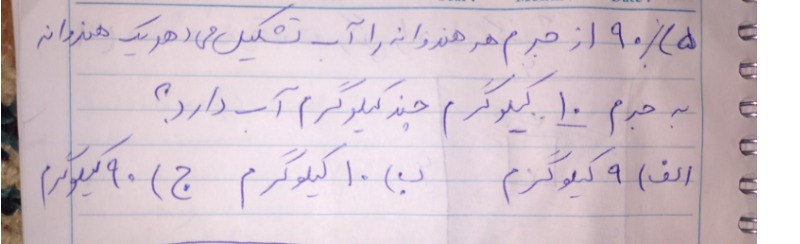 ۵) ۹۰٪ از جرم هر هندوانه را آب تشکیل می دهد یک هندوانه
به جرم ۱۰ کیلوگرم چند کیلوگرم آب دارد؟
الف) ۹ کیلوگرم ب) ۱۰ کیلوگرم ج) ۹۰ کیلوگرم